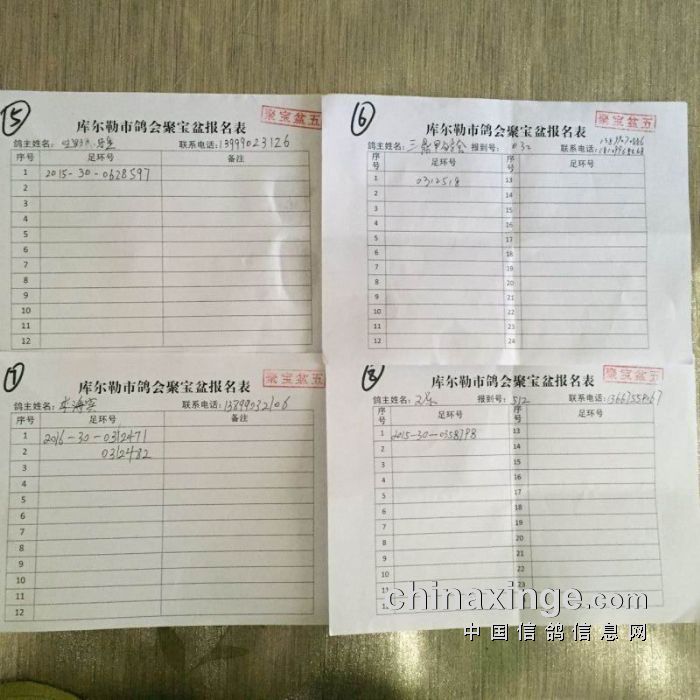 ⑤
聚宝盆五
库尔勒市鸽会聚宝盆报名表
鸽主姓名: 联系电话:13999023126
序号 足环号 备注
1 2015-30-0628597
2
3
4
5
6
7
8
9
10
11
12
⑥
聚宝盆五
库尔勒市鸽会聚宝盆报名表
鸽主姓名: 报到号: 032 联系电话:
序号 足环号 序号 足环号
1 0312518 13
2 14
3 15
4 16
5 17
6 18
7 19
8 20
9 21
10 22
11 23
12 24
⑦
聚宝盆五
库尔勒市鸽会聚宝盆报名表
鸽主姓名: 李海宾 联系电话:13899032106
序号 足环号 备注
1 2016-30-0312471
2 0312482
3
4
5
6
7
8
9
10
11
12
⑧
聚宝盆五
库尔勒市鸽会聚宝盆报名表
鸽主姓名: 报到号: 512 联系电话:
序号 足环号 序号 足环号
1 2015-30-0358798 13
2 14
3 15
4 16
5 17
6 18
7 19
8 20
9 21
10 22
11 23
chinaxinge.com
中国信鸽信息网